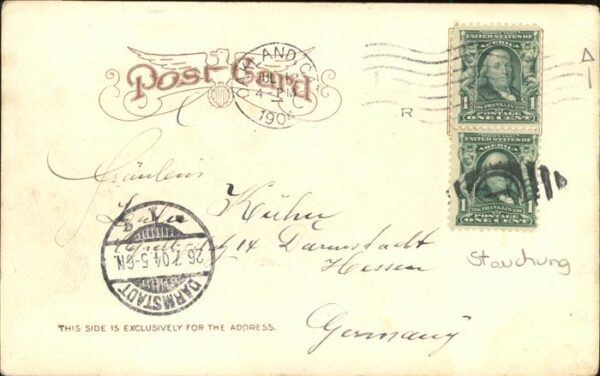 Post Card
OAKLAND, CAL.
JUL
4 - PM
1904
R
UNITED STATES OF AMERICA
1 1
FRANKLIN
POSTAGE
ONE CENT
UNITED STATES OF AMERICA
1
FRANKLIN
POSTAGE
ONE CENT
Fräulein
Kühn
14 Darmstadt
Hessen
Germany
Stauchung
26.7.04. 5-6N.
DARMSTADT
THIS SIDE IS EXCLUSIVELY FOR THE ADDRESS.